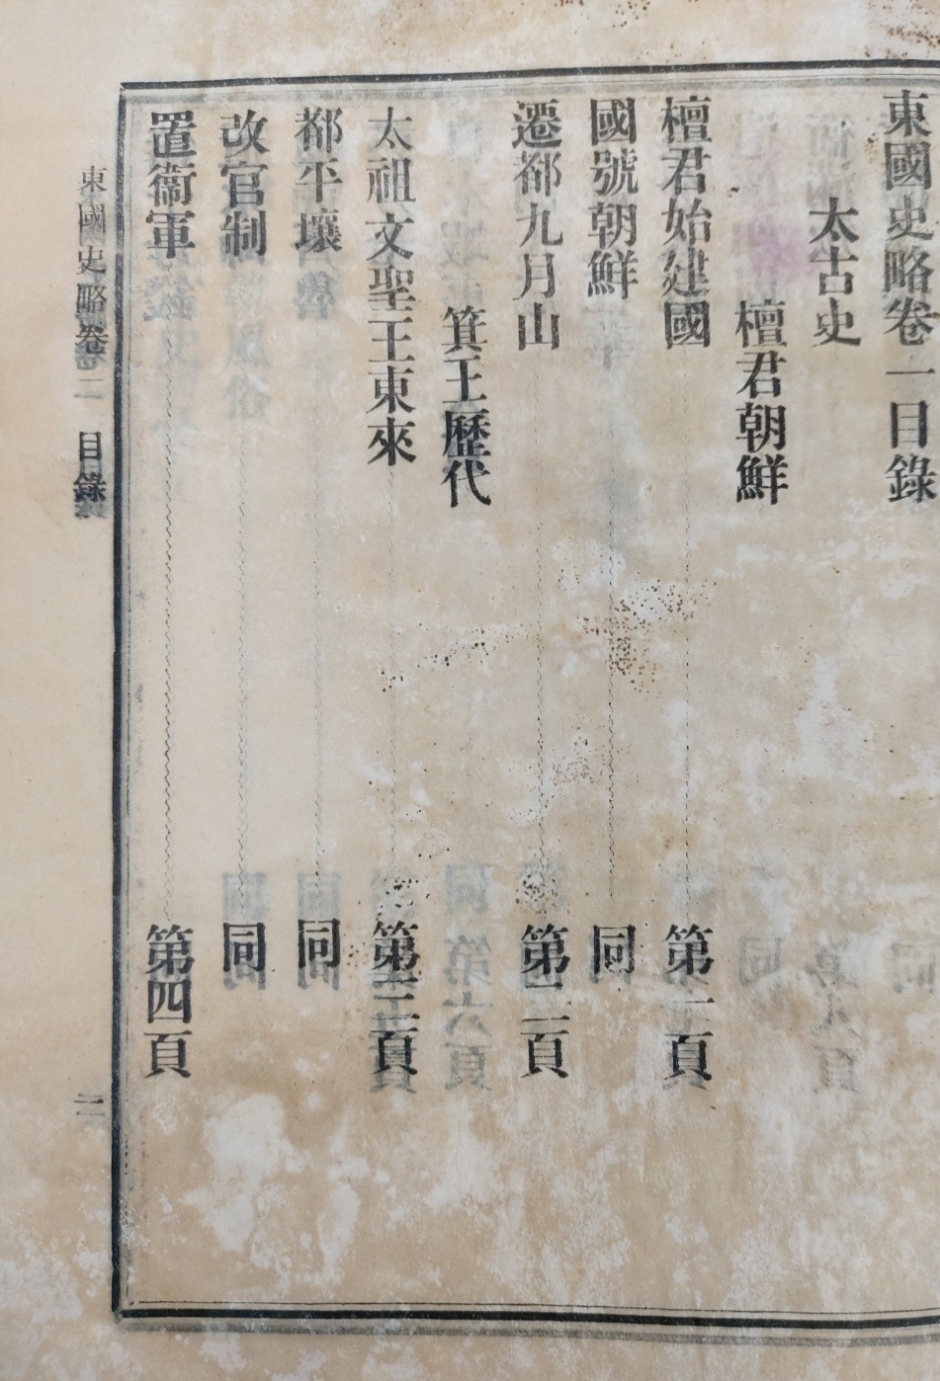 東國史略卷一目錄
太古史
檀君朝鮮
檀君始建國 第一頁
國號朝鮮 同
遷都九月山 第二頁
箕王歷代
太祖文聖王東來 第三頁
都平壤 同
改官制 同
置衞軍 第四頁
東國史略卷一 目錄